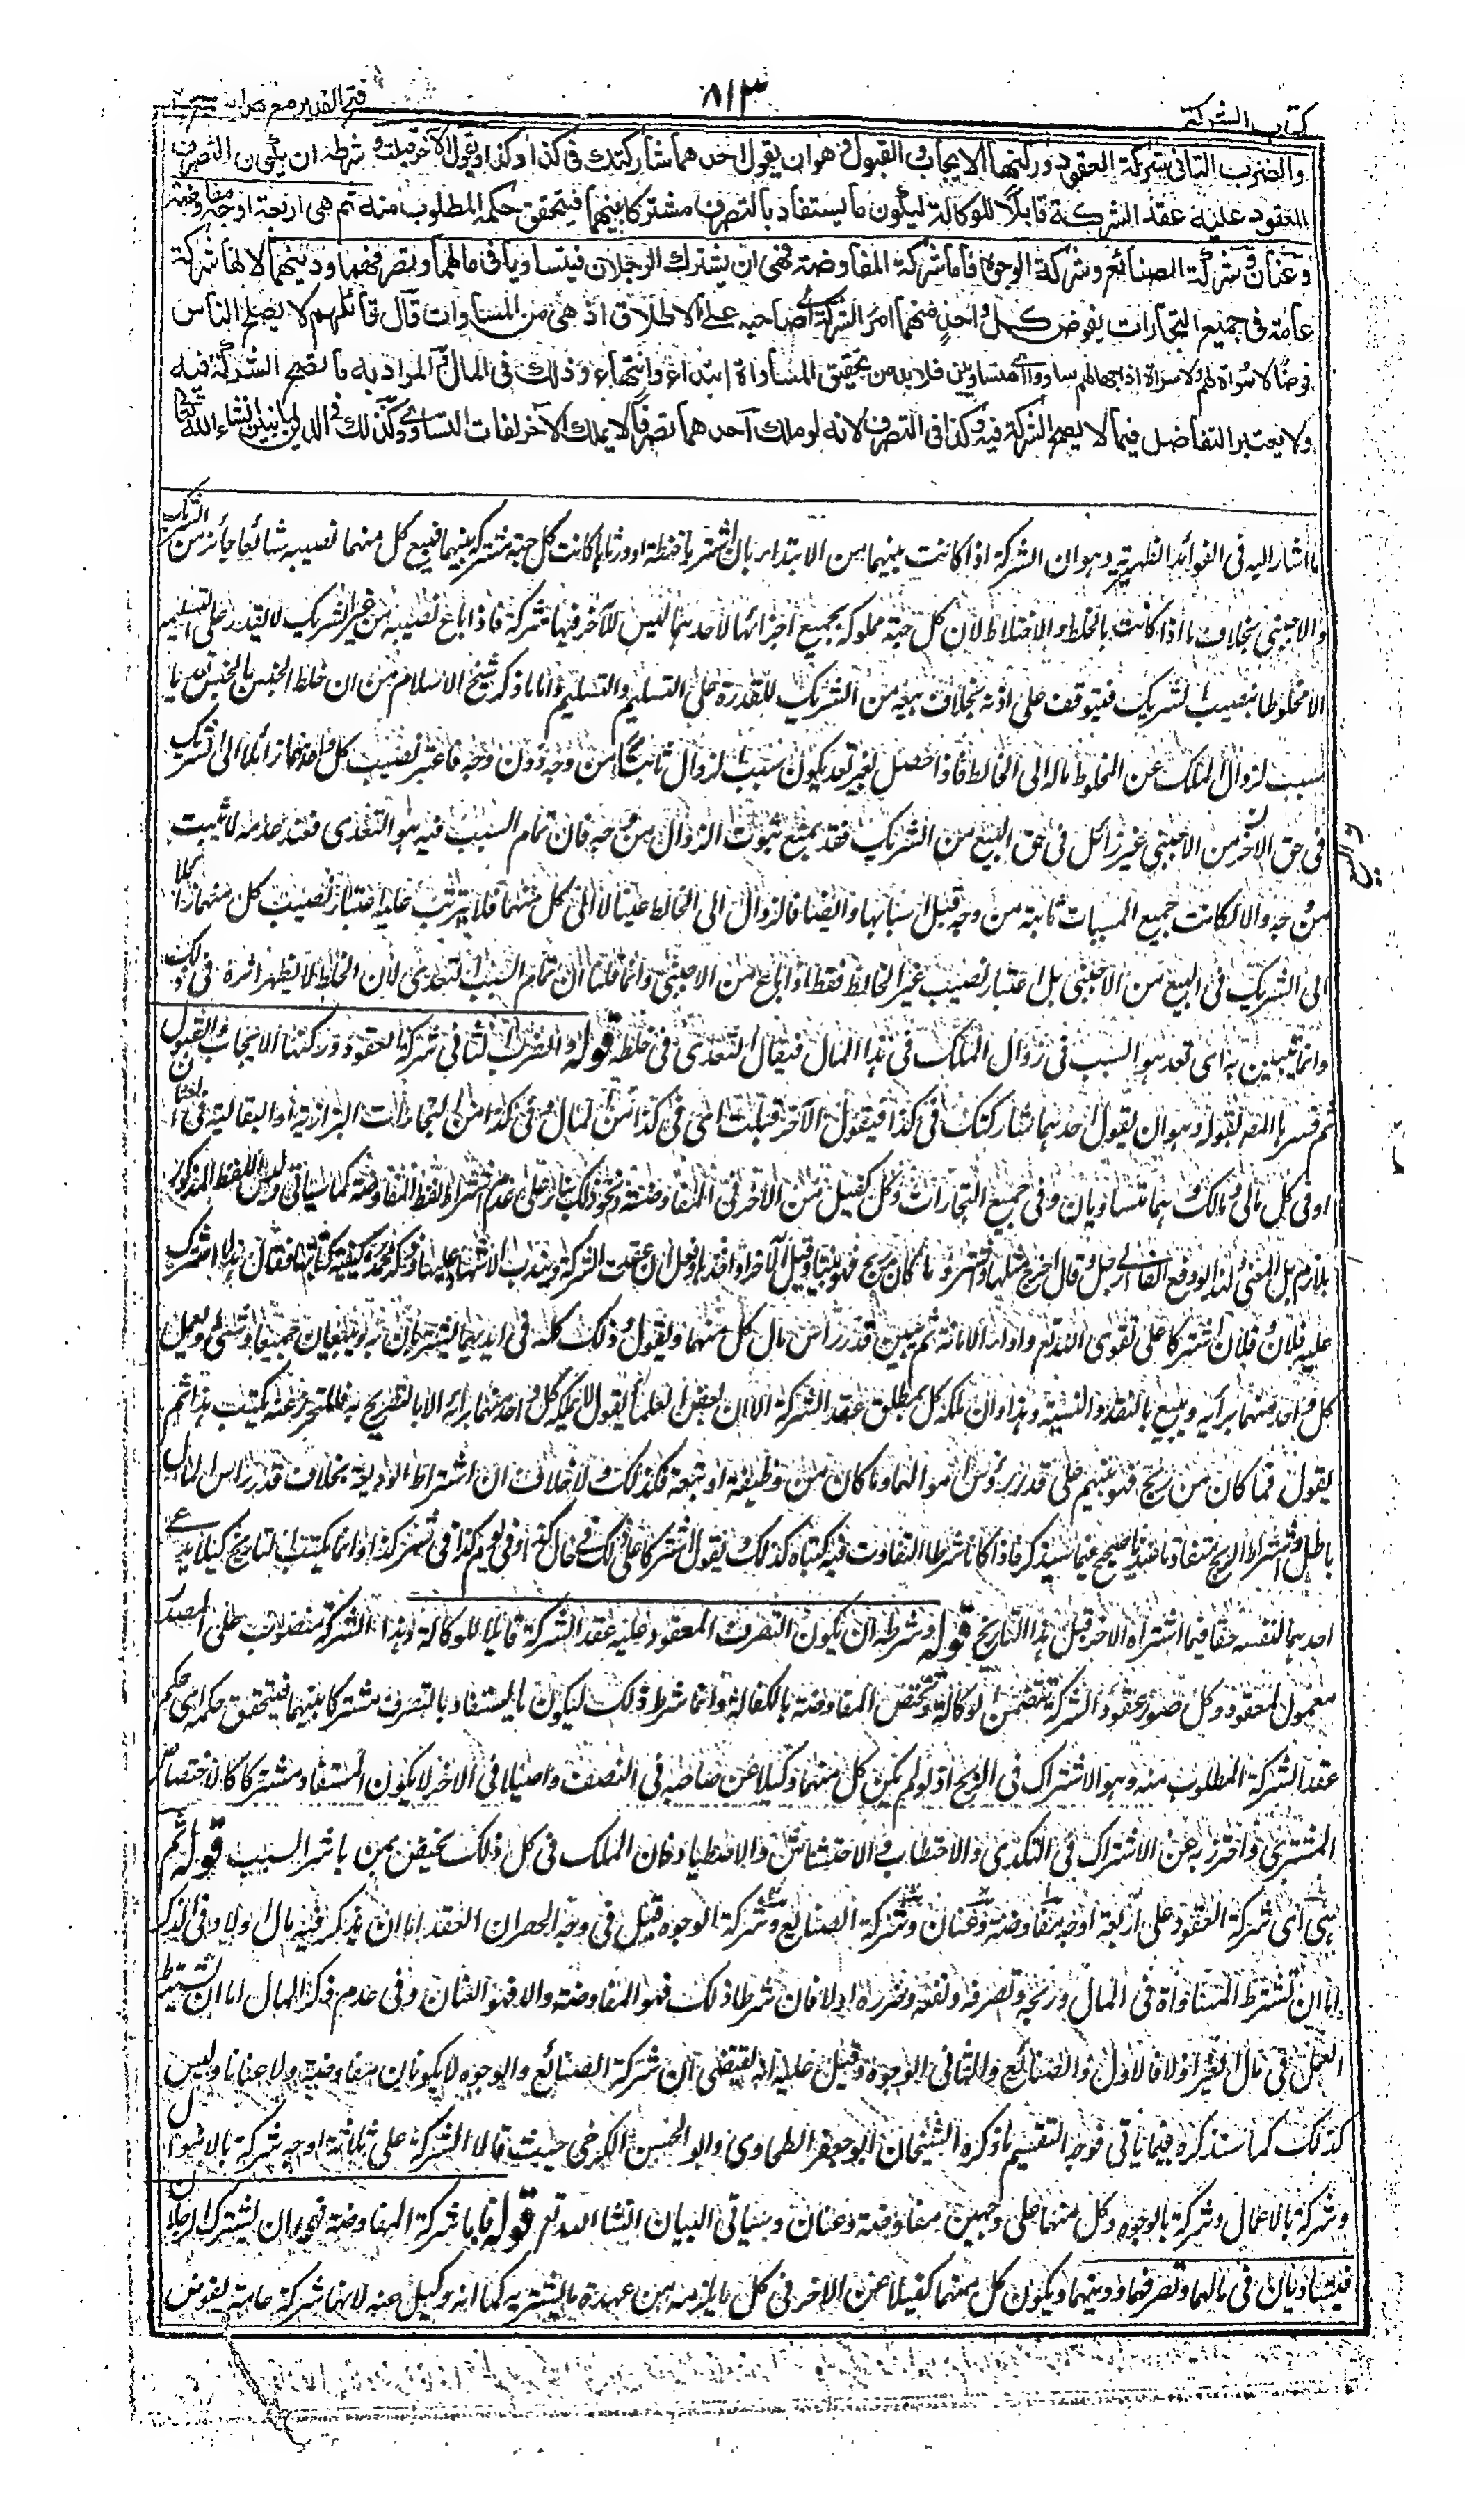 كتاب الشركة
٨١٣
فتح القدير مع هداية
والضرب الثاني شركة العقود وركنها الايجاب والقبول وهو ان يقول احدهما شاركتك في كذا وكذا ويقول الآخر قبلت وشرطه ان يكون التصرف
المعقود عليه عقد الشركة قابلا للوكالة ليكون ما يستفاد بالتصرف مشتركا بينهما فيتحقق حكمه المطلوب منه ثم هي اربعة اوجه مفاوضة
وعنان وشركة الصنائع وشركة الوجوه فاما شركة المفاوضة فهي ان يشترك الرجلان فيتساويا في مالهما وتصرفهما ودينهما لانها شركة
عامة في جميع التجارات يفوض كل واحد منهما امر الشركة الى صاحبه على الاطلاق اذ هي من المساوات قال قائلهم لا يصلح الناس
فوضا لا سراة لهم ولا سراة اذا جهالهم سادوا اي متساويين فلا بد من تحقيق المساواة ابتداء وانتهاء وذلك في المال والمراد به ما تصح الشركة فيه
ولا يعتبر التفاضل فيما لا يصح الشركة فيه وكذا في التصرف لانه لو ملك احدهما تصرفا لا يملك الآخر لفات التساوي وكذلك في الدين لما نبين ان شاء الله تعالى
ما اشار اليه في الفوائد الظهيرية وهو ان الشركة اذا كانت بينهما من الابتداء بان اشتريا حنطة او ورثاها كانت كل حبة مشتركة بينهما فبيع كل منهما نصيبه شائعا جائز من الشريك
والاجنبي بخلاف ما اذا كانت بالخلط والاختلاط لان كل حبة مملوكة بجميع اجزائها لاحدهما ليس للآخر فيها شركة فاذا باع نصيبه من غير الشريك لا يقدر على التسليم
الا مخلوطا بنصيب الشريك فيتوقف على اذنه بخلاف بيعه من الشريك للقدرة على التسليم والتسلم واما ما ذكر شيخ الاسلام من ان خلط الجنس بالجنس تعديا
سبب لزوال الملك عن المخلوط ماله الى الخالط فاذا حصل بغير تعد يكون سبب الزوال ثابتا من وجه دون وجه فاعتبر نصيب كل واحد منهما زائلا الى شريكه
في حق الآخر من الاجنبي غير زائل في حق البيع من الشريك فقد يمنع ثبوت الزوال من وجه فان تمام السبب فيه هو التعدي فعند عدمه لا يثبت
من وجه والا لكانت جميع المسببات ثابتة من وجه قبل اسبابها وايضا فالزوال الى الخالط عينا لا الى كل منهما فلا يترتب عليه اعتبار نصيب كل منهما زائلا
الى الشريك في البيع من الاجنبي بل اعتبار نصيب غير الخالط فقط اذا باع من الاجنبي وانما قلنا ان تمام السبب التعدي لان الخلط لا يظهر اثره في ذلك
وانما تبين به اي تعد هو السبب في زوال الملك في هذا المال فيقال التعدي في خلطه قوله والضرب الثاني شركة العقود وركنها الايجاب والقبول
ثم فسرهما المصنف بقوله وهو ان يقول احدهما شاركتك في كذا فيقول الآخر قبلت اي في كذا من المال وفي كذا من التجارات البزازية او البقالية في العنان
او في كل مالي ومالك وهما متساويان وفي جميع التجارات وكل كفيل عن الآخر في المفاوضة ونحو ذلك بناء على عدم اشتراط لفظ المفاوضة كما سيأتي وليس اللفظ المذكور
بلازم بل المعنى ولهذا لو دفع الفا الى رجل وقال اخرج مثلها واشتر وما كان من ربح فهو بيننا وقبل الآخر او اخذها وفعل انعقدت الشركة ويندب الاشهاد عليها وذكر محمد رحمه كيفية كتابتها فقال هذا ما اشترك
عليه فلان وفلان اشتركا على تقوى الله تعالى واداء الامانة ثم يبين قدر رأس مال كل منهما ويقول وذلك كله في ايديهما يشتريان به ويبيعان جميعا وشتى ويعمل
كل واحد منهما برأيه ويبيع بالنقد والنسيئة وهذا وان ملكه كل بمطلق عقد الشركة الا ان بعض العلماء يقول لا يملكه كل واحد منهما برأيه الا بالتصريح به فللتحرز عنه يكتب هذا ثم
يقول فما كان من ربح فهو بينهم على قدر رؤس اموالهما وما كان من وضيعة او تبعة فكذلك ولا خلاف ان اشتراط الوضيعة بخلاف قدر رأس المال
باطل واشتراط الربح متفاوتا عندنا صحيح فيما سيذكر فاذا كانا شرطا التفاوت فيه كتباه كذلك ويقول اشتركا على ذلك في يوم كذا في شهر كذا وانما يكتب التاريخ كيلا يدعي
احدهما لنفسه حقا فيما اشتراه الآخر قبل هذا التاريخ قوله وشرطه ان يكون التصرف المعقود عليه عقد الشركة قابلا للوكالة وهذا الشركة منصوب على المصدر
معمول المعقود وكل صور عقود الشركة تتضمن الوكالة وتختص المفاوضة بالكفالة وانما شرط ذلك ليكون ما يستفاد بالتصرف مشتركا بينهما فيتحقق حكمه اي حكم
عقد الشركة المطلوب منه وهو الاشتراك في الربح اذ لو لم يكن كل منهما وكيلا عن صاحبه في النصف واصيلا في الآخر لا يكون المستفاد مشتركا لاختصاص
المشتري واحترز به عن الاشتراك في التكدي والاحتطاب والاحتشاش والاصطياد فان الملك في كل ذلك يختص بمن باشر السبب قوله ثم
هي اي شركة العقود على اربعة اوجه مفاوضة وعنان وشركة الصنايع وشركة الوجوه قيل في وجه الحصر ان العقد اما ان يذكر فيه مال اولا وفي الذكر
اما ان تشترط المساواة في المال وربحه وتصرفه ونفعه وضرره اولا فان شرطا ذلك فهو المفاوضة والا فهو العنان وفي عدم ذكر المال اما ان يشترط
العمل في مال الغير اولا فالاول الصنائع والثاني الوجوه وقيل عليه انه يقتضي ان شركة الصنائع والوجوه لا يكونان مفاوضة ولا عنانا وليس
كذلك كما سنذكره فيما يأتي فوجه التقسيم ما ذكره الشيخان ابو جعفر الطحاوي وابو الحسن الكرخي حيث قالا الشركة على ثلاثة اوجه شركة بالاموال
وشركة بالاعمال وشركة بالوجوه وكل منهما على وجهين مفاوضة وعنان وسيأتي البيان انشاء الله تعالى قوله فاما شركة المفاوضة فهي ان يشترك الرجلان
فيتساويان في مالهما وتصرفهما ودينهما ويكون كل منهما كفيلا عن الآخر في كل ما يلزمه من عهدة ما يشتريه كما انه وكيل عنه لانها شركة عامة يفوض